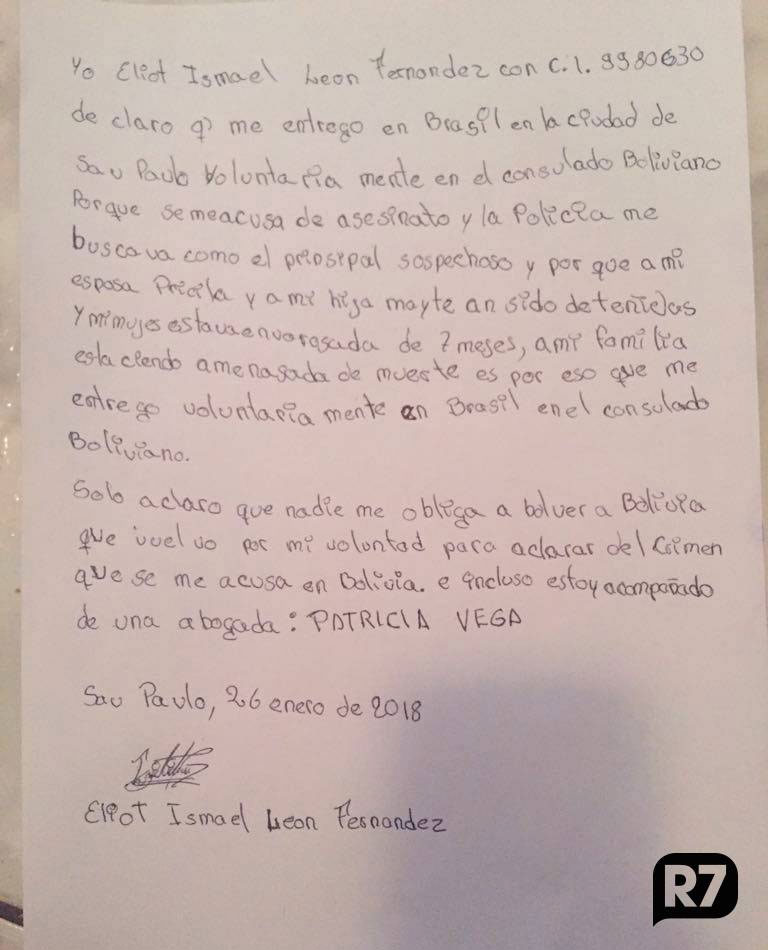 Yo Eliot Ismael Leon Fernandez con C.I. 9980630
de claro q) me entrego en Brasil en la ciudad de
Sau Paulo Voluntaria mente en el consulado Boliviano
Porque se me acusa de asesinato y la Policia me
buscava como el prinsipal sospechoso y por que a mi
esposa Pricila y a mi hija mayte an sido detenidas
y mi mujer estava envarasada de 7 meses, a mi familia
esta ciendo amenasada de muerte es por eso que me
entrego voluntaria mente en Brasil en el consulado
Boliviano.
Solo aclaro que nadie me obliga a bolver a Bolivia
que vuelvo por mi voluntad para aclarar del Crimen
que se me acusa en Bolivia. e incluso estoy acompañado
de una abogada: PATRICIA VEGA
Sau Paulo, 26 enero de 2018
Eliot Ismael Leon Fernandez
R7